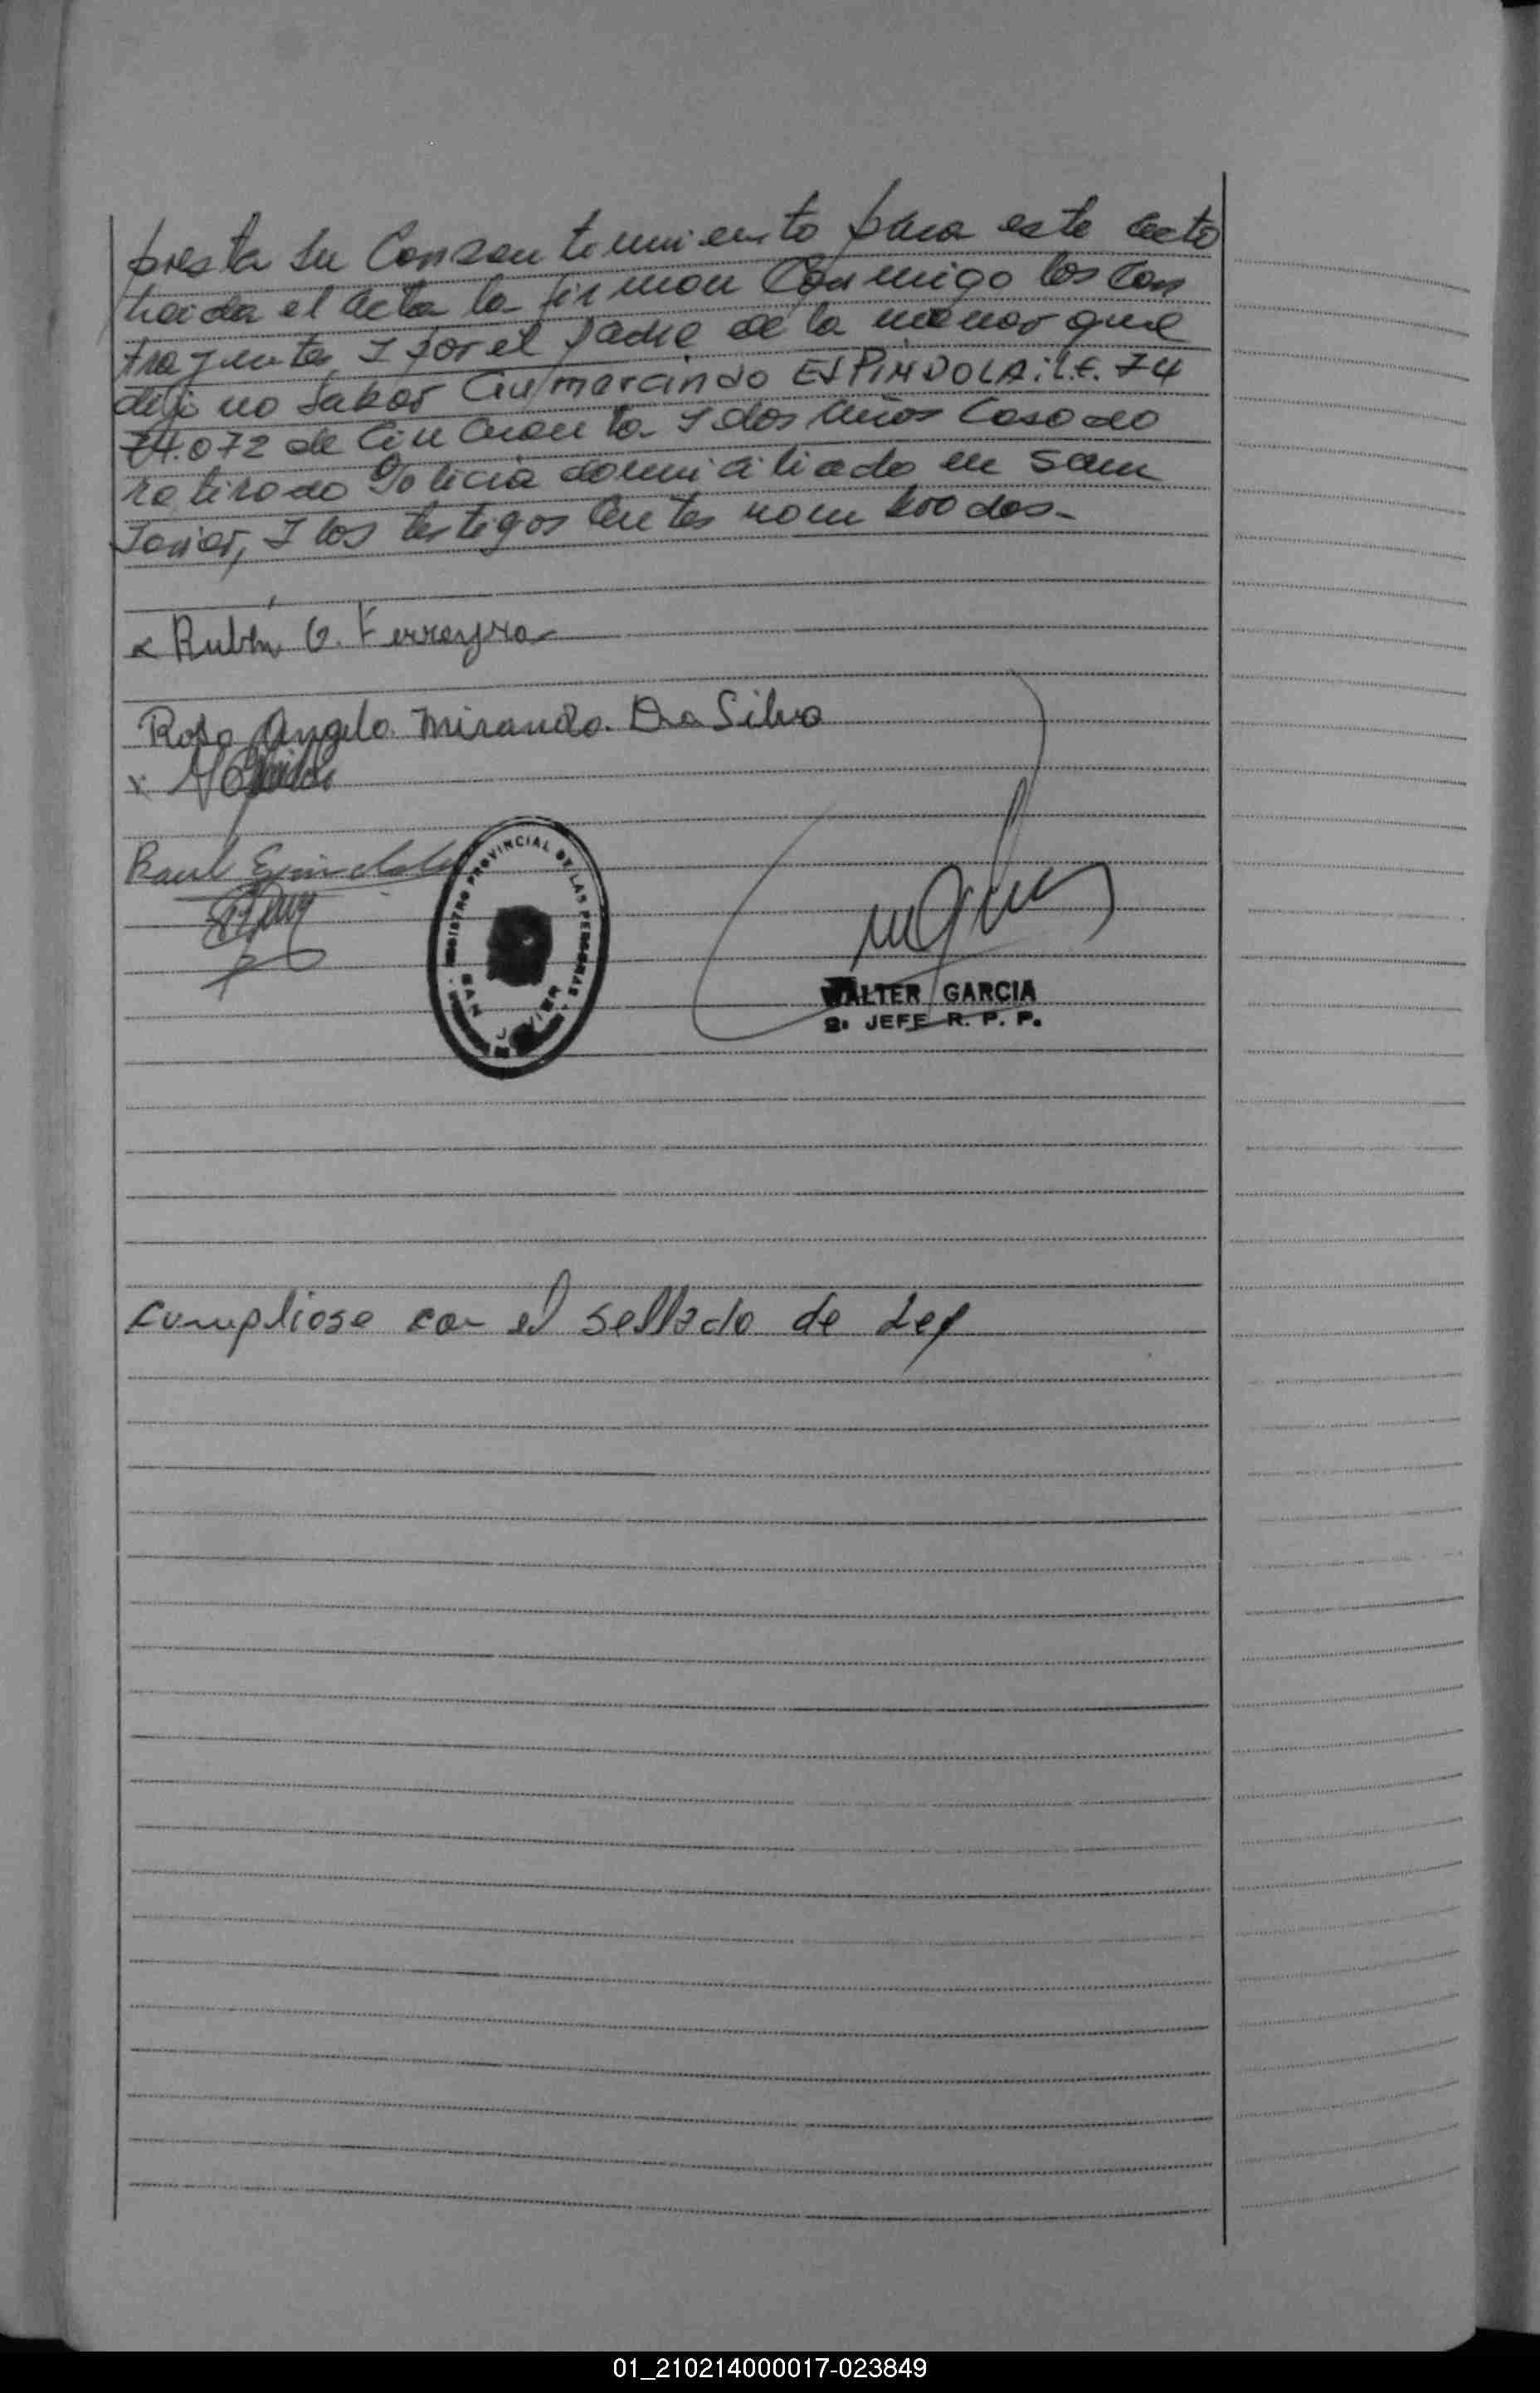 presta su Consentimiento para este acto
leida el acta la firman Conmigo los Con
trayentes, y por el padre de la menor que
dijo no saber Gumarcindo ESPINDOLA: L.E. 74
74.072 de Cincuenta y dos años Casado
retirado Policia domiciliado en San
Javier, y los testigos Antes nombrados-
x Rubén G. Ferreyra
Rosa Angela Miranda Da Silva
x
Raul Espindola
REGISTRO PROVINCIAL DE LAS PERSONAS
SAN JAVIER
WALTER GARCIA
JEFE R. P. P.
Cumpliose con el sellado de Ley
01_210214000017-023849